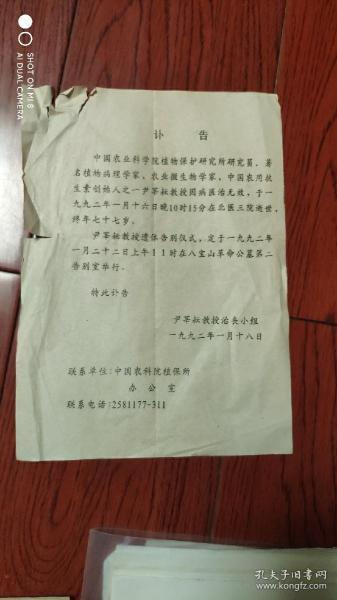 SHOT ON MI 8
AI DUAL CAMERA
讣 告
中国农业科学院植物保护研究所研究员、著
名植物病理学家、农业微生物学家、中国农用抗
生素创始人之一尹莘耘教授因病医治无效,于一
九九二年一月十六日晚10时15分在北医三院逝世,
终年七十七岁。
尹莘耘教授遗体告别仪式,定于一九九二年
一月二十二日上午11时在八宝山革命公墓第二
告别室举行。
特此讣告
尹莘耘教授治丧小组
一九九二年一月十八日
联系单位:中国农科院植保所
办 公 室
联系电话:2581177-311
孔夫子旧书网
www.kongfz.com